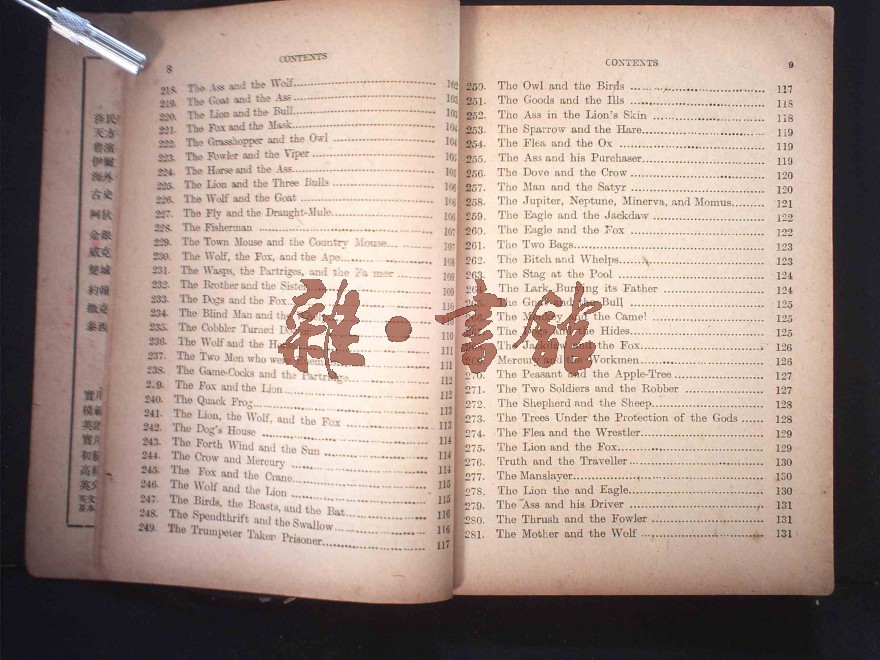 8
CONTENTS
218. The Ass and the Wolf 102
219. The Goat and the Ass 103
220. The Lion and the Bull 103
221. The Fox and the Mask 104
222. The Grasshopper and the Owl 104
223. The Fowler and the Viper 105
224. The Horse and the Ass 105
225. The Lion and the Three Bulls 106
226. The Wolf and the Goat 106
227. The Fly and the Draught-Mule 106
228. The Fisherman 107
229. The Town Mouse and the Country Mouse 107
230. The Wolf, the Fox, and the Ape 108
231. The Wasps, the Partriges, and the Fa mer 109
232. The Brother and the Sister 109
233. The Dogs and the Fox 110
234. The Blind Man and the 110
235. The Cobbler Turned 110
236. The Wolf and the 111
237. The Two Men who were 111
238. The Game-Cocks and the Partridge
2 9. The Fox and the Lion 112
240. The Quack Frog 112
241. The Lion, the Wolf, and the Fox 113
242. The Dog's House 113
243. The Forth Wind and the Sun 114
244. The Crow and Mercury 114
245. The Fox and the Crane 114
246. The Wolf and the Lion 115
247. The Birds, the Beasts, and the Bat 115
248. The Spendthrift and the Swallow 116
249. The Trumpeter Taken Prisoner 117
CONTENTS
9
250. The Owl and the Birds 117
251. The Goods and the Ills 118
252. The Ass in the Lion's Skin 118
253. The Sparrow and the Hare 119
254. The Flea and the Ox 119
255. The Ass and his Purchaser 119
256. The Dove and the Crow 120
257. The Man and the Satyr 120
258. The Jupiter, Neptune, Minerva, and Momus 121
259. The Eagle and the Jackdaw 122
260. The Eagle and the Fox 122
261. The Two Bags 123
262. The Bitch and Whelps 123
263. The Stag at the Pool 124
The Lark Burying its Father 124
The Gnat and the Bull 125
The Monkey and the Came! 125
The Dogs and the Hides 125
The Jackdaw and the Fox 126
Mercury and the Workmen 126
270. The Peasant and the Apple-Tree 127
271. The Two Soldiers and the Robber 127
272. The Shepherd and the Sheep 128
273. The Trees Under the Protection of the Gods 128
274. The Flea and the Wrestler 129
275. The Lion and the Fox 129
276. Truth and the Traveller 130
277. The Manslayer 130
278. The Lion the and Eagle 130
279. The Ass and his Driver 131
280. The Thrush and the Fowler 131
281. The Mother and the Wolf 131
天方
伊爾
海外
古史
金銀
威克
雙城
約翰
撒克
泰西
雜·書館